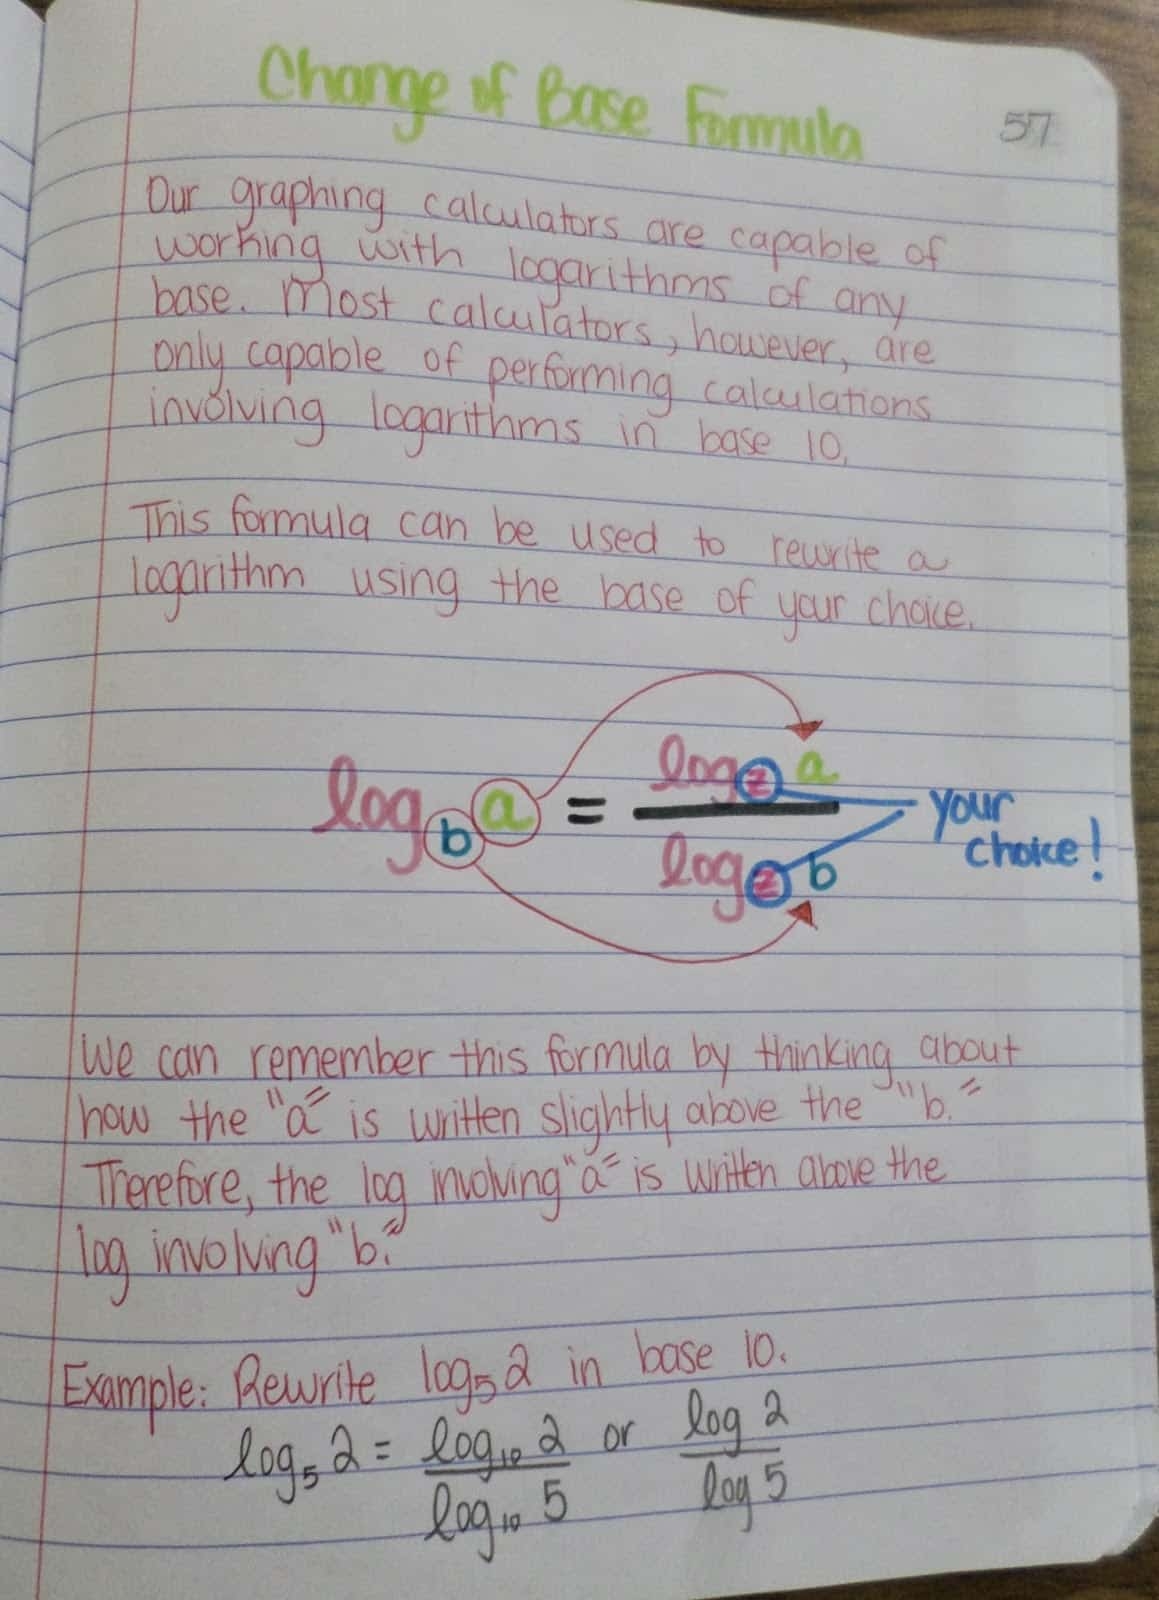 Change of Base Formula
57
Our graphing calculators are capable of
working with logarithms of any
base. Most calculators, however, are
only capable of performing calculations
involving logarithms in base 10.
This formula can be used to rewrite a
logarithm using the base of your choice.
log_b a = log_z a / log_z b
your
choice!
We can remember this formula by thinking about
how the "a" is written slightly above the "b."
Therefore, the log involving "a" is written above the
log involving "b."
Example: Rewrite log₅2 in base 10.
log₅2 = log₁₀2 / log₁₀5 or log 2 / log 5